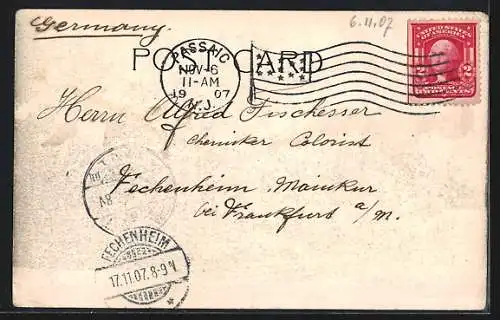 6.11.07
Germany.
POST CARD
PASSAIC
NOV-6
11-AM
1907
N.J.
2
Herrn Alfred Fischesser
chemiker Colorist
Fechenheim Mainkur
bei Frankfurt a/M.
FECHENHEIM
17.11.07.8-9N